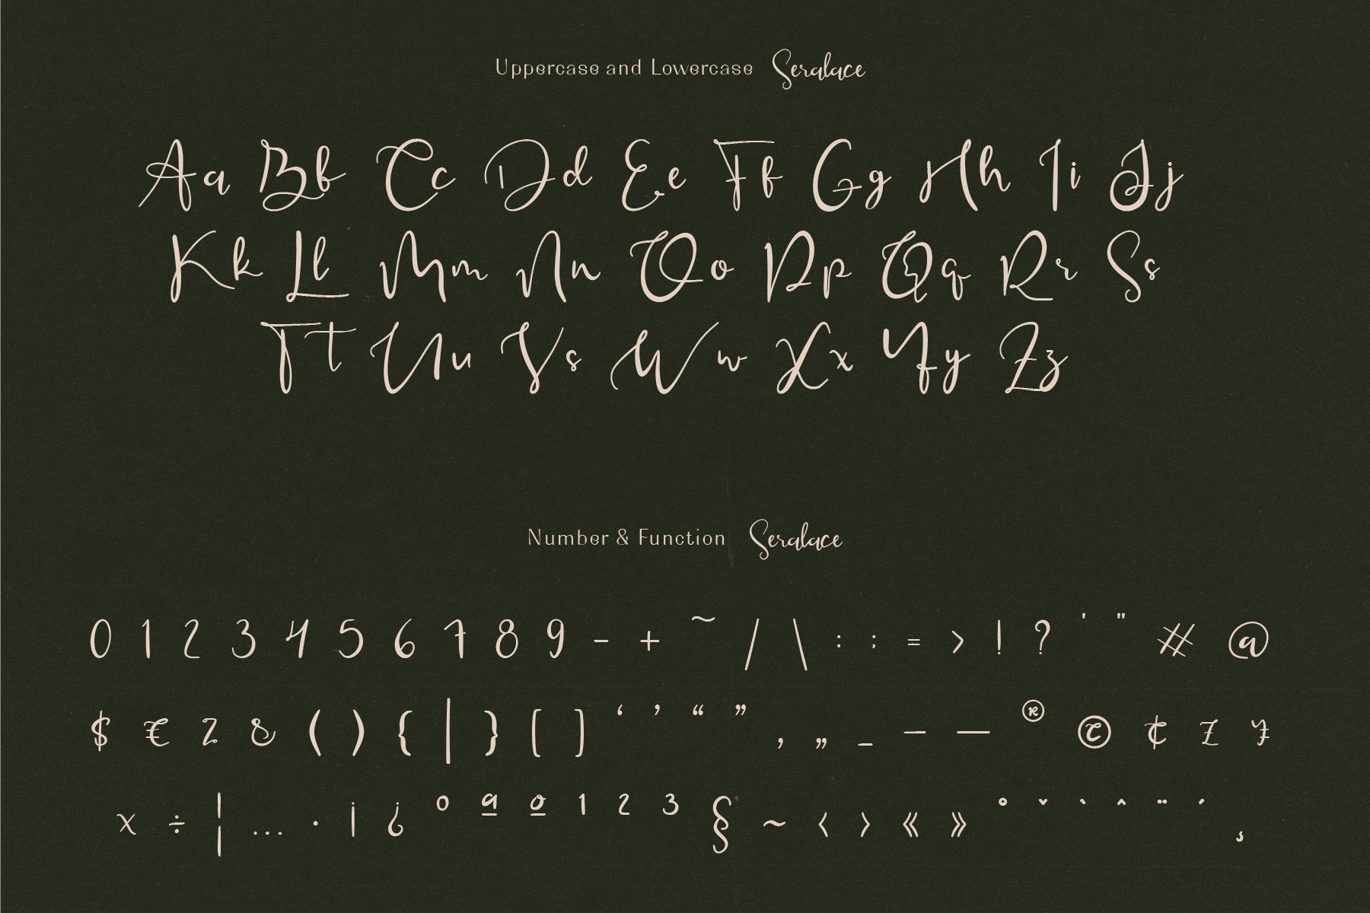 Uppercase and Lowercase Seralace
Aa Bb Cc Dd Ee Ff Gg Hh Ii Jj
Kk Ll Mm Nn Oo Pp Qq Rr Ss
Tt Uu Vs Ww Xx Yy Zz
Number & Function Seralace
0 1 2 3 4 5 6 7 8 9 - + ~ / \ : ; = > ! ? ' " # @
$ € 2 & ( ) { | } [ ] ‘ ’ “ ” ‚ „ _ – — ® © ¢ £ ¥
× ÷ ¦ … · ¡ ¿ º ª º ¹ ² ³ § ~ ‹ › « » ° ˇ ` ^ ¨ ´ ¸